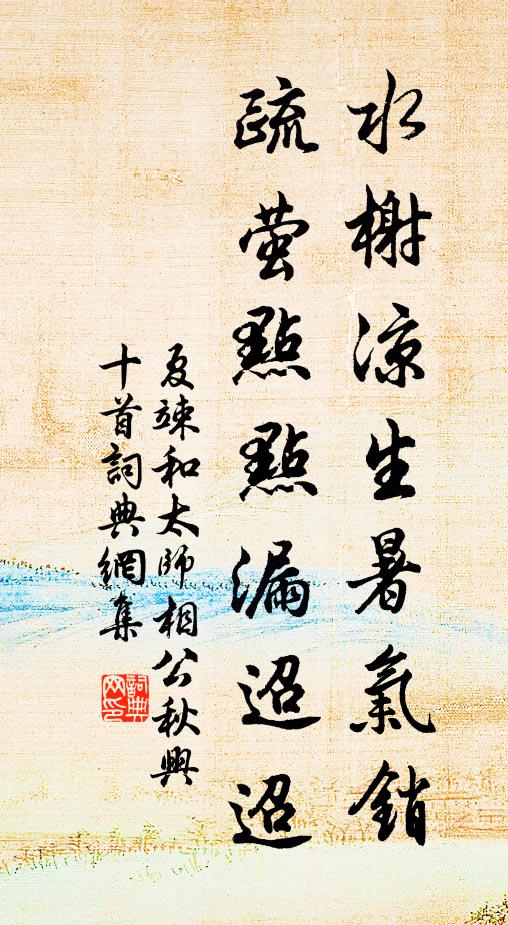 水榭凉生暑氣銷
疏螢點點漏迢迢
夏竦和太師相公秋興
十首詞典網集
詞典
网印